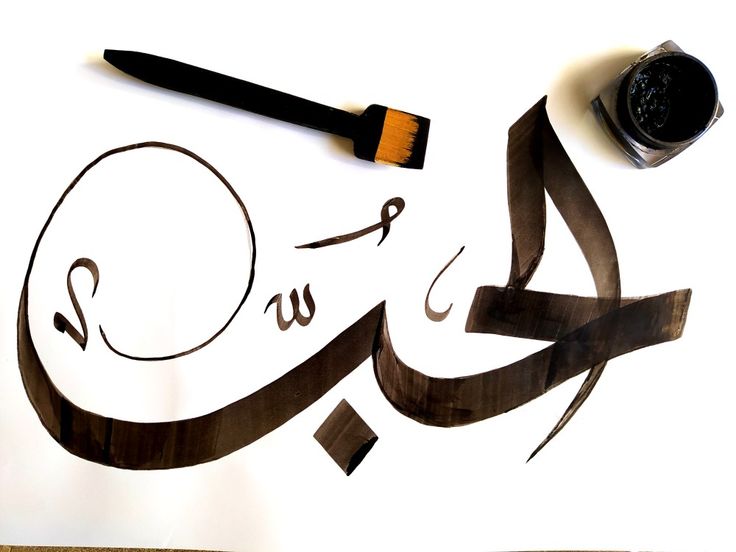 الحُبّ